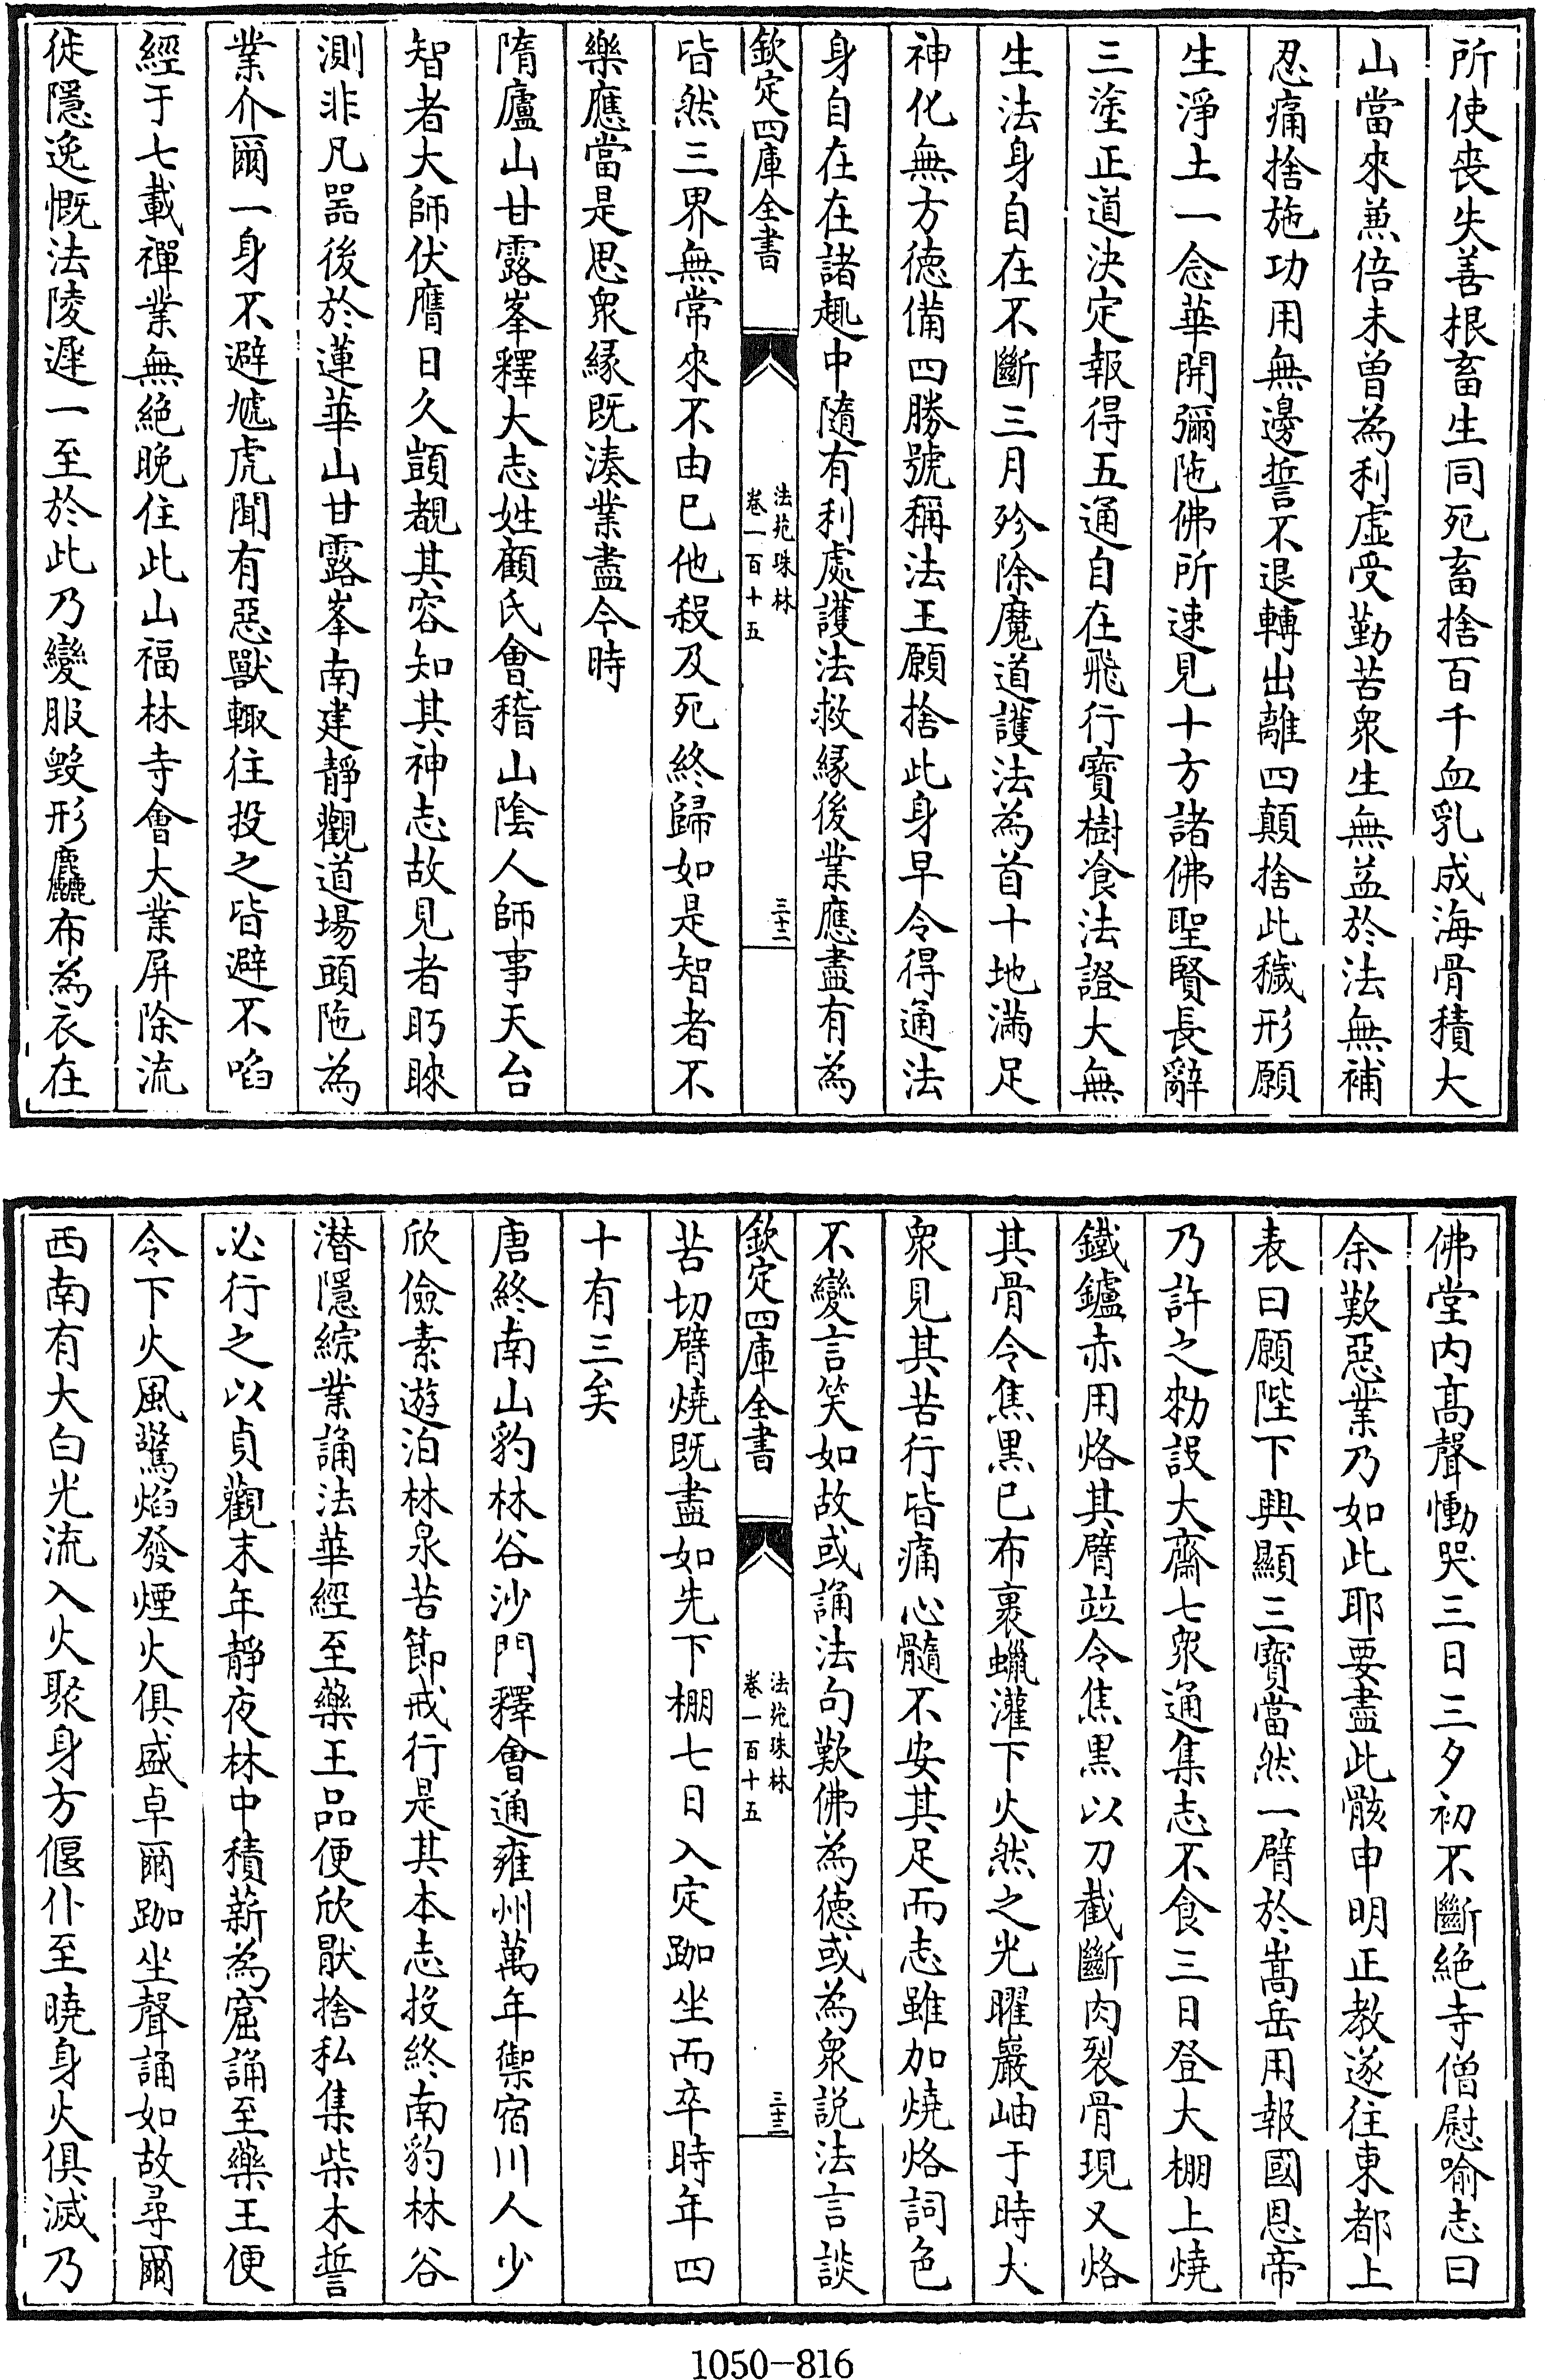 所使喪失善根畜生同死畜捨百千血乳成海骨積大
山當來兼倍未曽為利虚受勤苦衆生無益於法無補
忍痛捨施功用無邊誓不退轉出離四顛捨此穢形願
生淨土一念華開彌陁佛所速見十方諸佛聖賢長辭
三塗正道決定報得五通自在飛行寶樹飡法證大無
生法身自在不斷三月殄除魔道護法為首十地滿足
神化無方徳備四勝號稱法王願捨此身早令得通法
身自在在諸趣中隨有利處護法救縁後業應盡有為
欽定四庫全書
法苑珠林
卷一百十五
三十二
皆然三界無常來不由已他殺及死終歸如是智者不
樂應當是思衆縁既湊業盡今時
隋廬山甘露峯釋大志姓顧氏會稽山陰人師事天台
智者大師伏膺日久顗覩其容知其神志故見者眄睞
測非凡器後於蓮華山甘露峯南建靜觀道場頭陁為
業介爾一身不避虓虎聞有惡獸輙往投之皆避不啗
經于七載禪業無絶晩住此山福林寺會大業屏除流
徙隱逸慨法陵遲一至於此乃變服毀形麤布為衣在
佛堂内髙聲慟哭三日三夕初不斷絶寺僧慰喻志曰
余歎惡業乃如此耶要盡此骸申明正教遂往東都上
表曰願陛下興顯三寶當然一臂於嵩岳用報國恩帝
乃許之勑設大齋七衆通集志不食三日登大棚上燒
鐵鑪赤用烙其臂竝令焦黒以刀截斷肉裂骨現又烙
其骨令焦黒已布裹蠟灌下火然之光曜巖岫于時大
衆見其苦行皆痛心髓不安其足而志雖加燒烙詞色
不變言笑如故或誦法句歎佛為徳或為衆説法言談
欽定四庫全書
法苑珠林
卷一百十五
三十三
苦切臂燒既盡如先下棚七日入定跏坐而卒時年四
十有三矣
唐終南山豹林谷沙門釋會通雍州萬年禦宿川人少
欣儉素遊泊林泉苦節戒行是其本志投終南豹林谷
潜隱綜業誦法華經至藥王品便欣猒捨私集柴木誓
必行之以貞觀末年靜夜林中積薪為窟誦至藥王便
令下火風驚焰發煙火俱盛卓爾跏坐聲誦如故尋爾
西南有大白光流入火聚身方偃仆至曉身火俱滅乃
1050-816